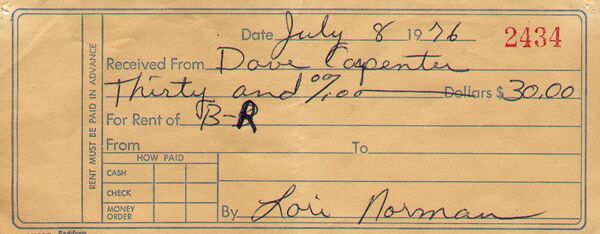 Date July 8 1976 2434
Received From Dave Carpenter
Thirty and 00/00 Dollars $ 30.00
For Rent of B-R
From To
RENT MUST BE PAID IN ADVANCE
HOW PAID
CASH
CHECK
MONEY ORDER
By Lori Norman
Rediform